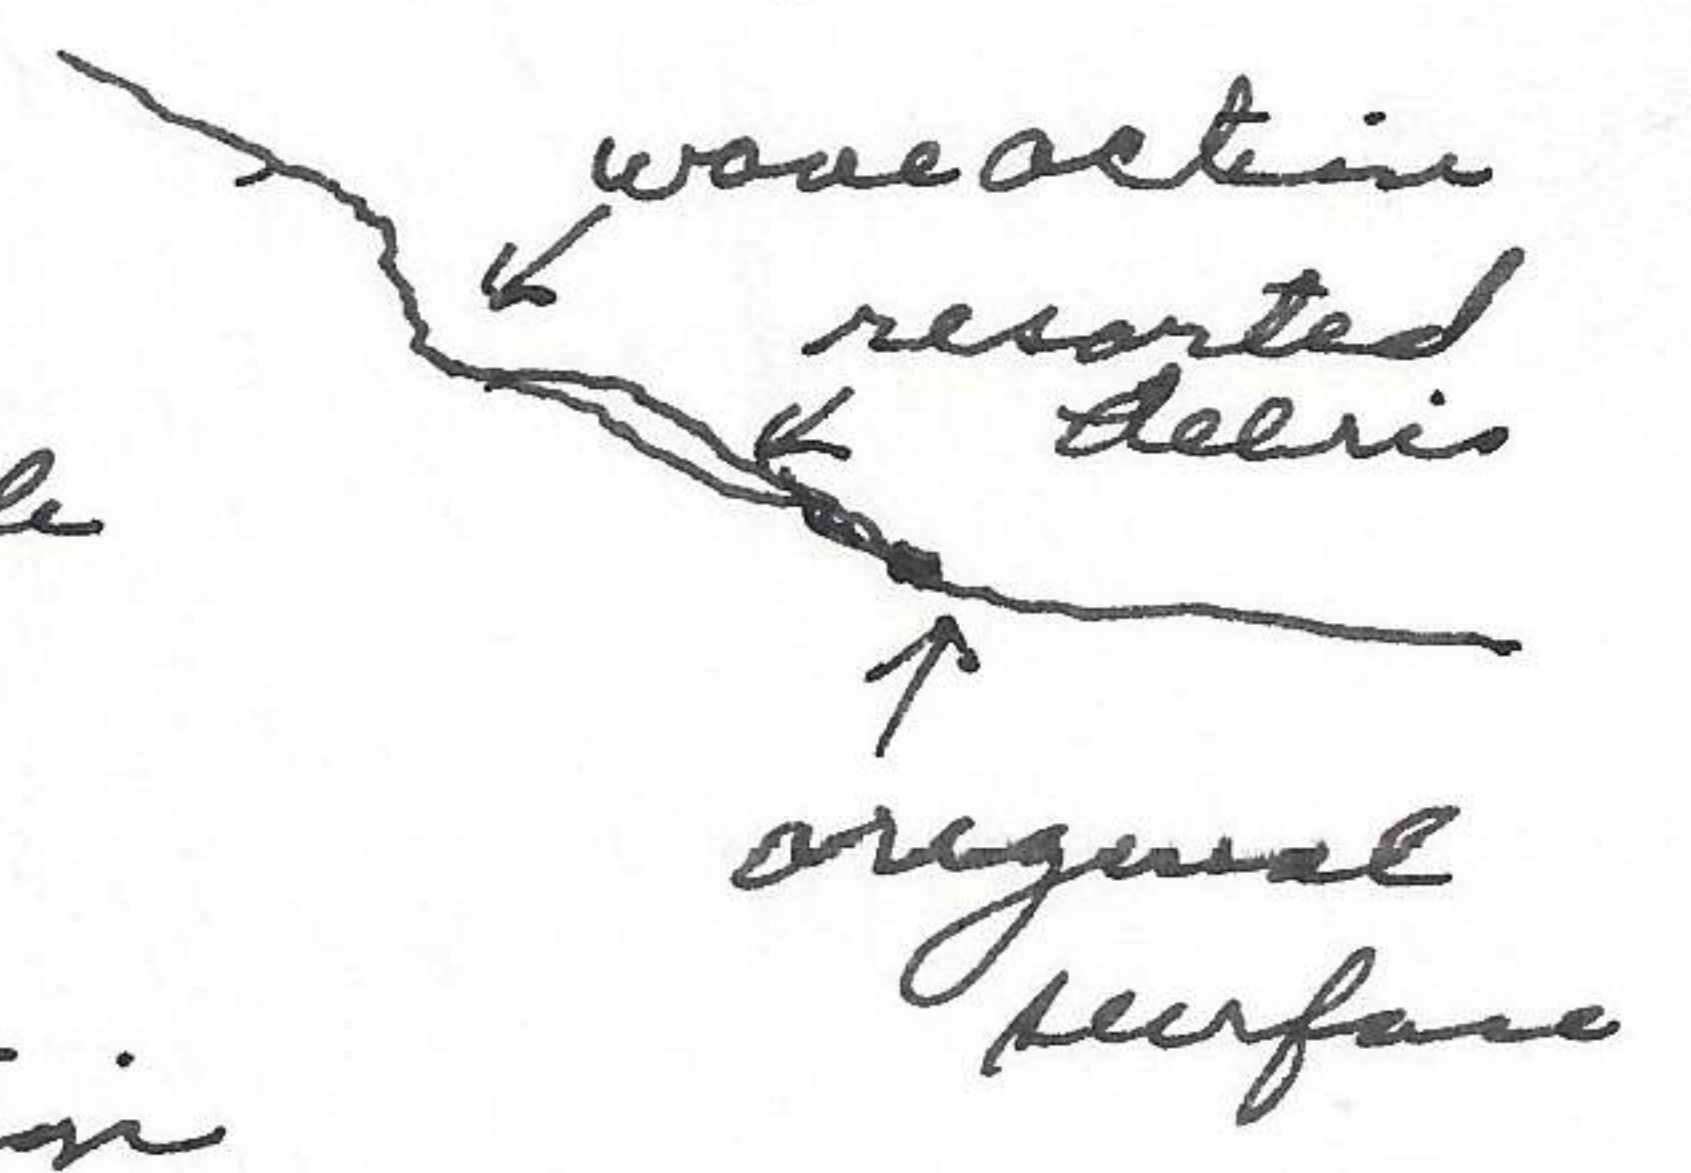 wave action
resorted
debris
original
surface